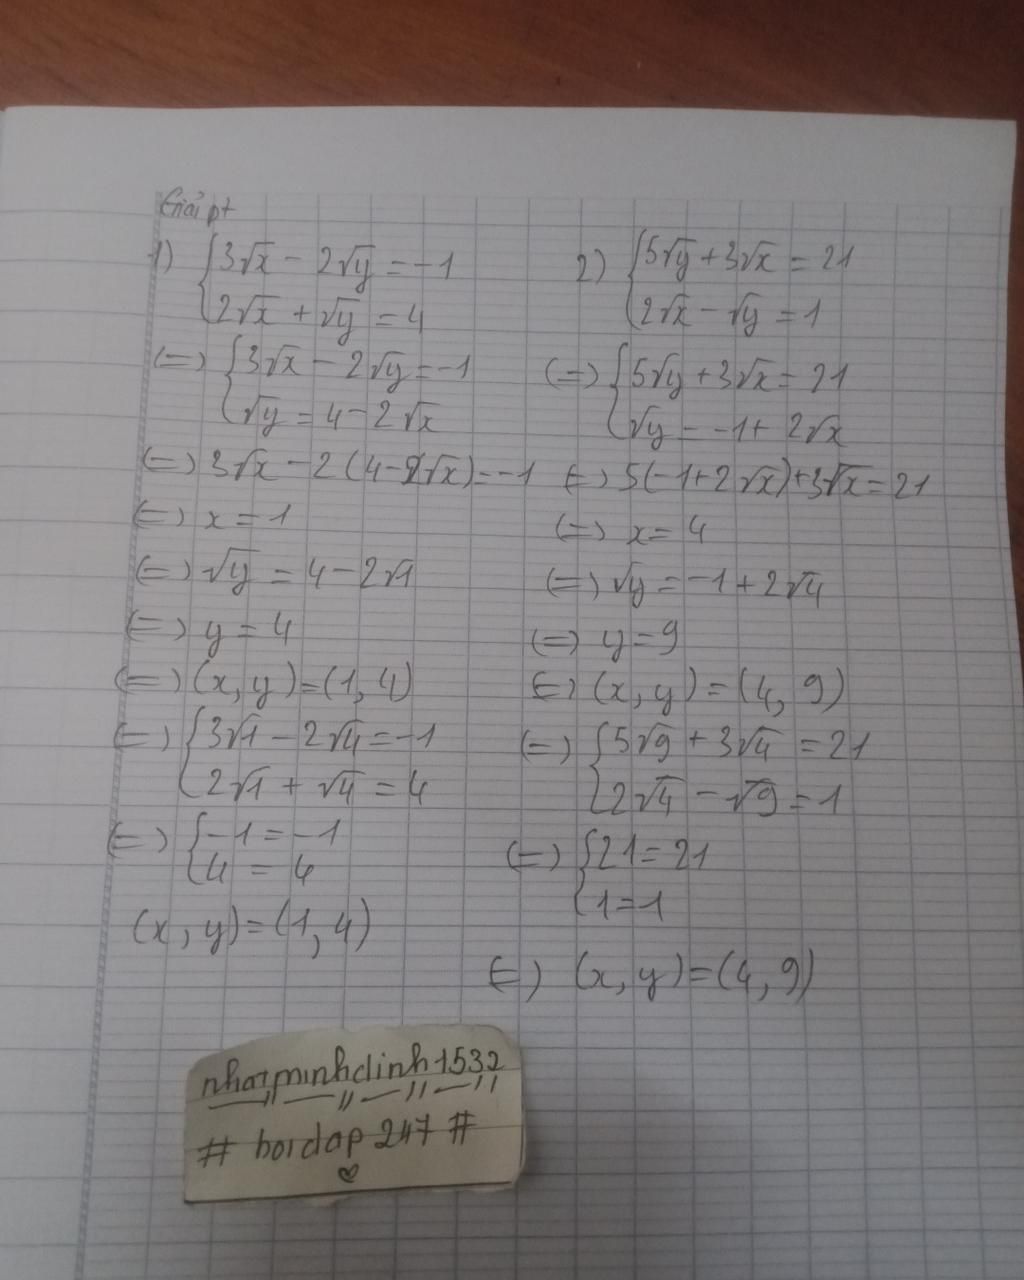 Giải pt
1) {3√x - 2√y = -1
{2√x + √y = 4
(=) {3√x - 2√y = -1
{√y = 4 - 2√x
(=) 3√x - 2(4-2√x) = -1
(=) x = 1
(=) √y = 4 - 2√1
(=) y = 4
(=) (x, y) = (1, 4)
(=) {3√1 - 2√4 = -1
{2√1 + √4 = 4
(=) {-1 = -1
{4 = 4
(x, y) = (1, 4)
2) {5√y + 3√x = 21
{2√x - √y = 1
(=) {5√y + 3√x = 21
{√y = -1 + 2√x
(=) 5(-1 + 2√x) + 3√x = 21
(=) x = 4
(=) √y = -1 + 2√4
(=) y = 9
(=) (x, y) = (4, 9)
(=) {5√9 + 3√4 = 21
{2√4 - √9 = 1
(=) {21 = 21
{1 = 1
(=) (x, y) = (4, 9)
nhatminhdinh1532
# hoidap 247 #